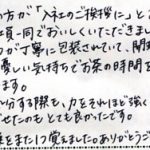 の方が「入社のご挨拶に」と
員一同でおいしくいただきまし
つが丁寧に包装されていて、開
優しい気持ちでお茶の時間を
ます。
分する際も、力をそれほど強く
せたのもとても良かったです。
をまた1つ覚えました。ありがとうご